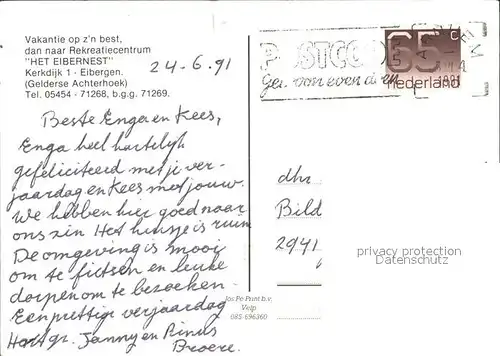 Vakantie op z'n best,
dan naar Rekreatiecentrum
"HET EIBERNEST"
Kerkdijk 1 - Eibergen.
(Gelderse Achterhoek)
Tel. 05454 - 71268, b.g.g. 71269.
24-6.91
POSTCODE
65 c
nederland
Beste Enga en Kees,
Enga heel hartelijk
gefeliciteerd met je ver-
jaardag en Kees met jouw.
We hebben hier goed naar
ons zin Het huisje is ruim
De omgeving is mooi
om te fietsen en leuke
dorpen om te bezoeken.
Een prettige verjaardag
Hart gr. Janny en Rinus
Broere.
dhr
Bild
2941
privacy protection
Datenschutz
Jos Pe Print b.v.
Velp
085-696360